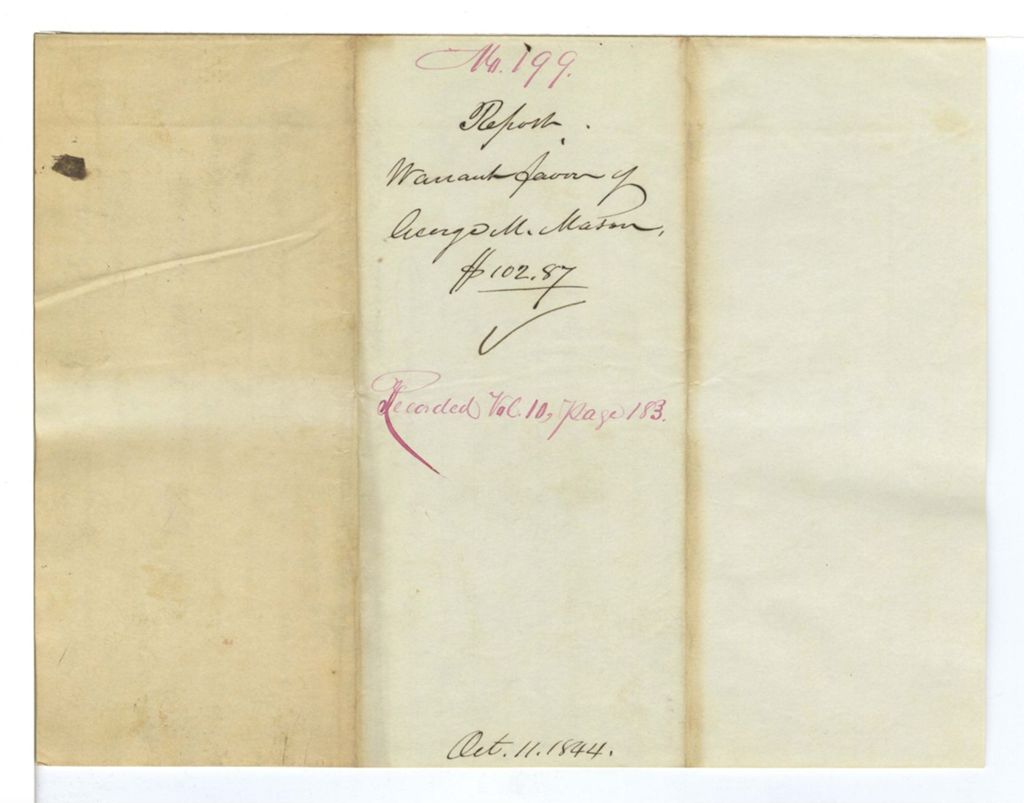 No. 199.
Report.
Warrant favor of
George M. Mason,
$102.87
Recorded Vol. 10, page 183.
Oct. 11. 1844.